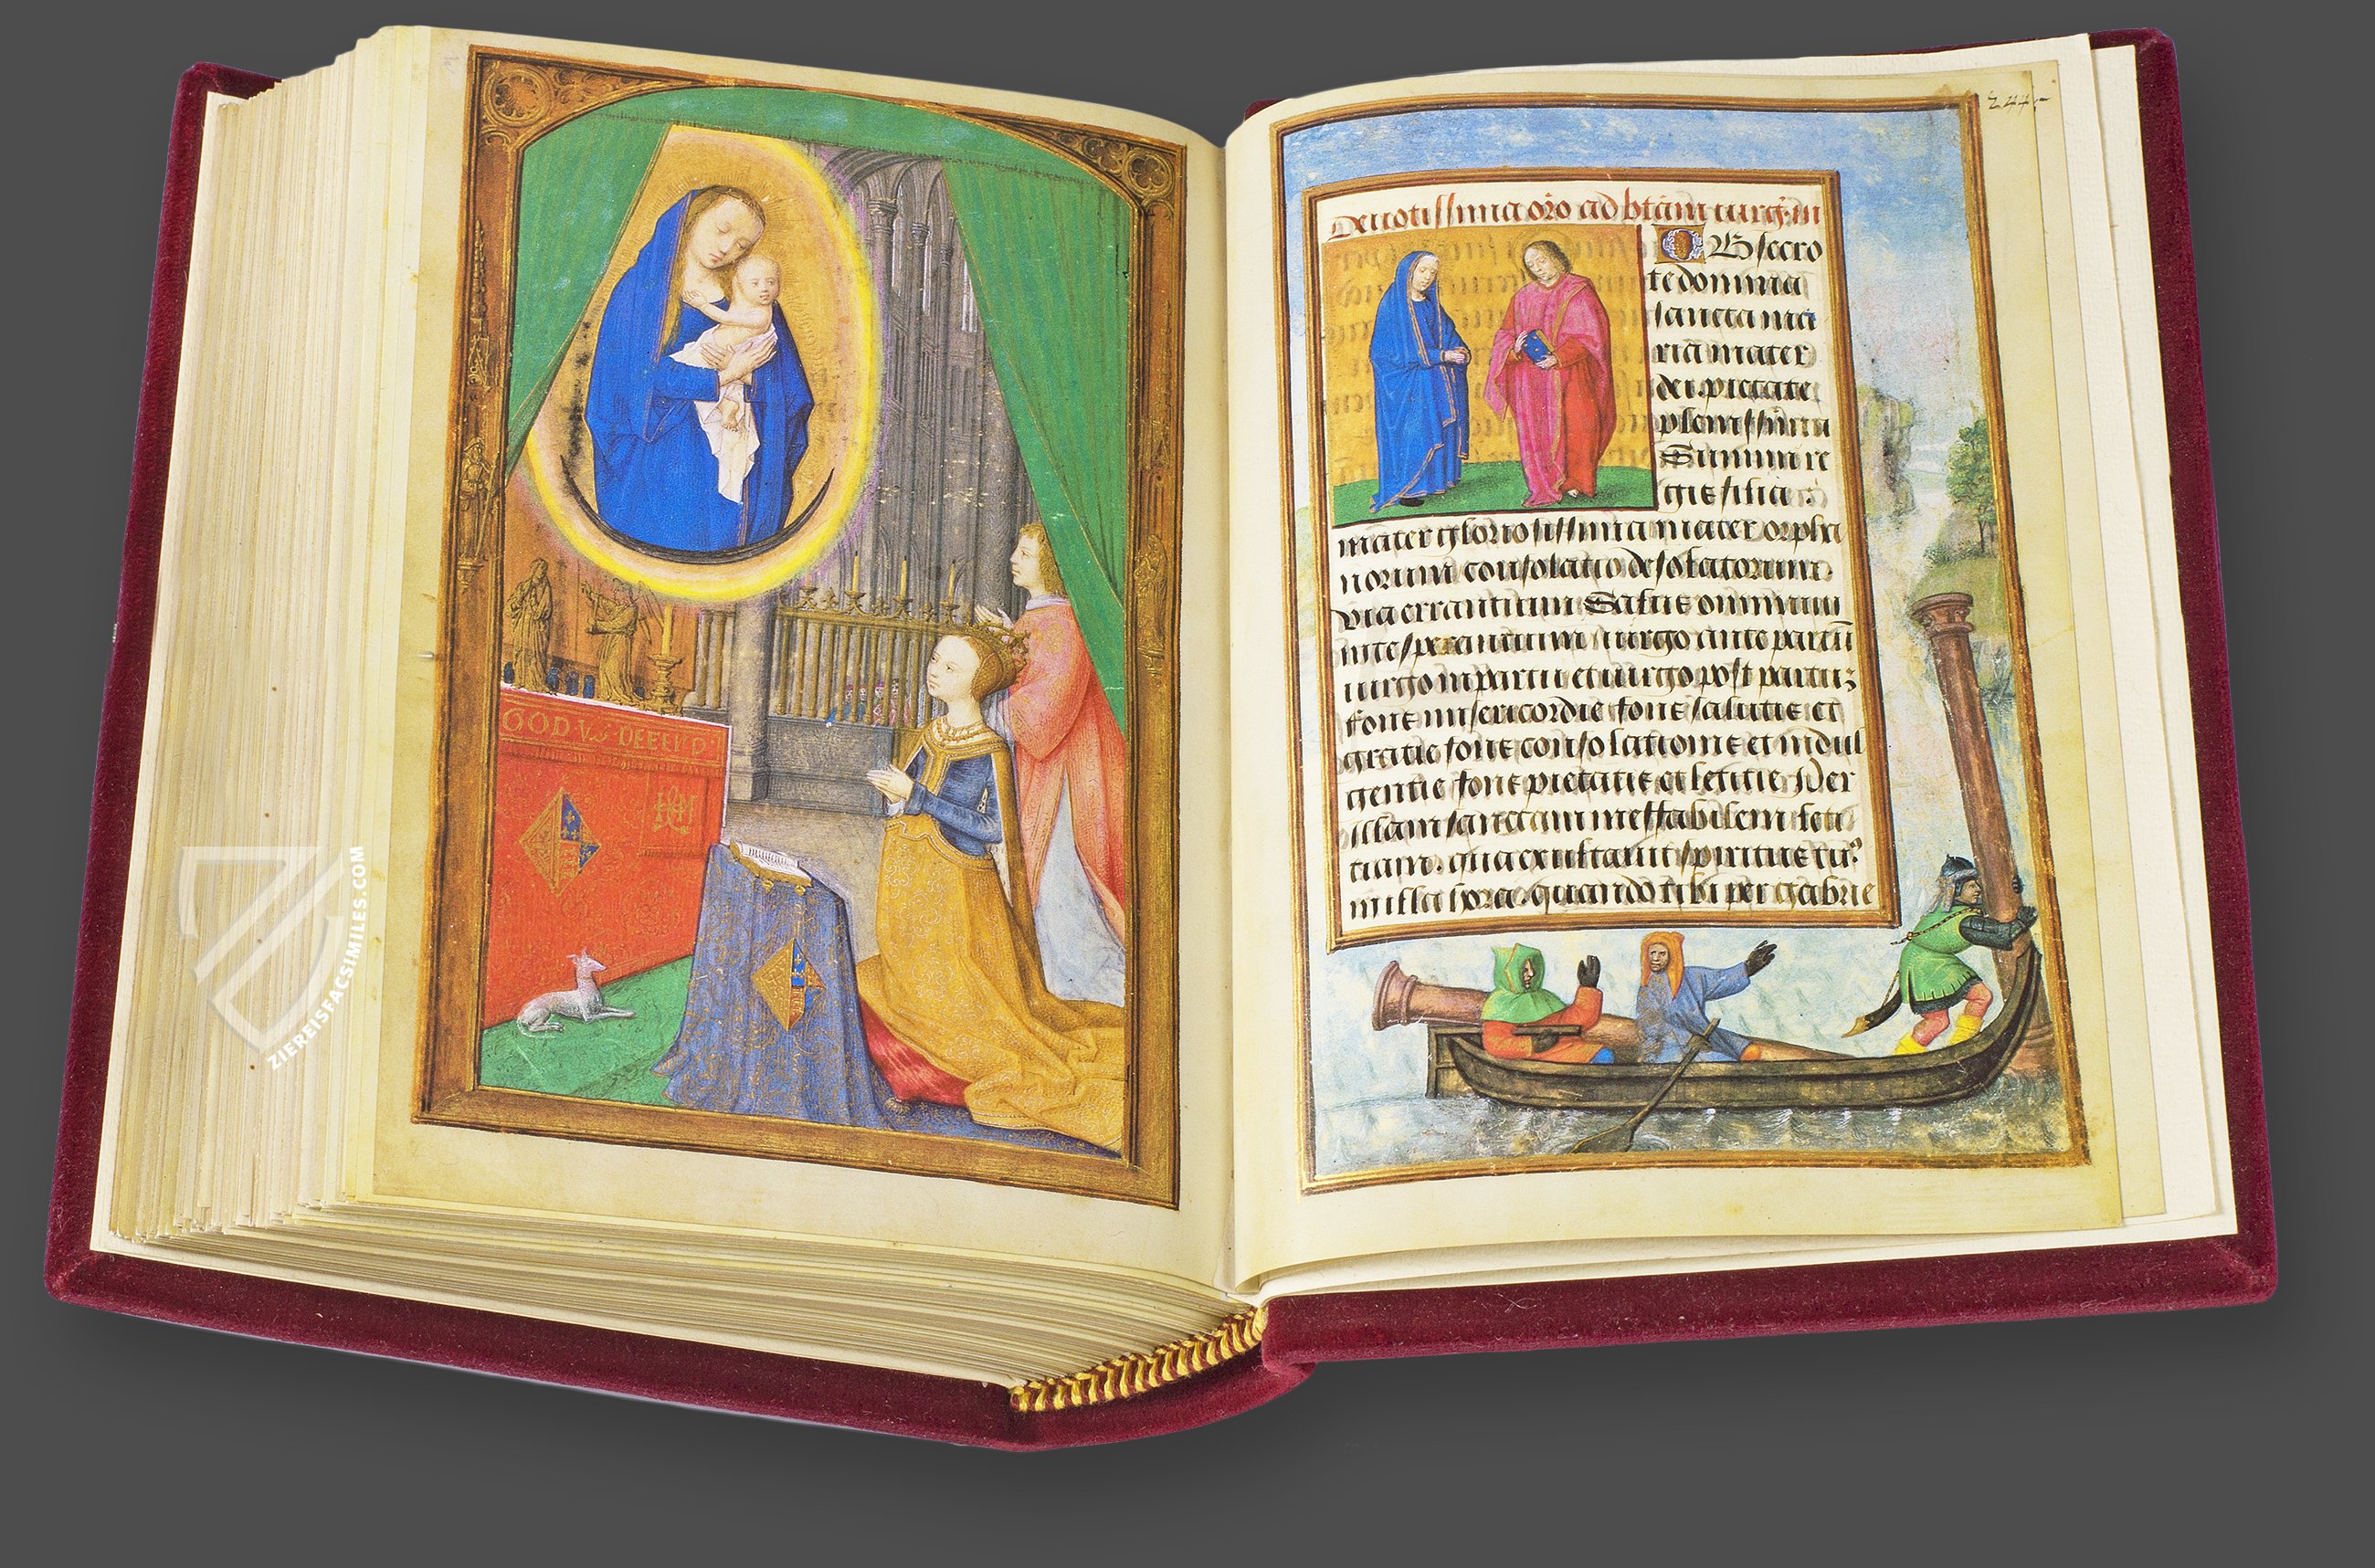 GOD VS DEFEND
ZIEREISFACSIMILES.COM
244
Devotissima oro ad btam virg. m
Obsecro
te domina
sancta ma
ria mater
dei pietate
plenissima
Summi re
gis filia :
mater gloriosissima mater orpha
norum consolatio desolatorum.
via errantium Salus omnium
in te sperantium virgo ante partu
virgo in partu et virgo post partuz
fons misericordie fons salutis et
gratie fons consolationis et indul
gentie fons pietatis et letitie Per
illam sanctam ineffabilem leti
tiam. qua exultavit spiritus tuus
in illa hora. quando tibi per gabrie